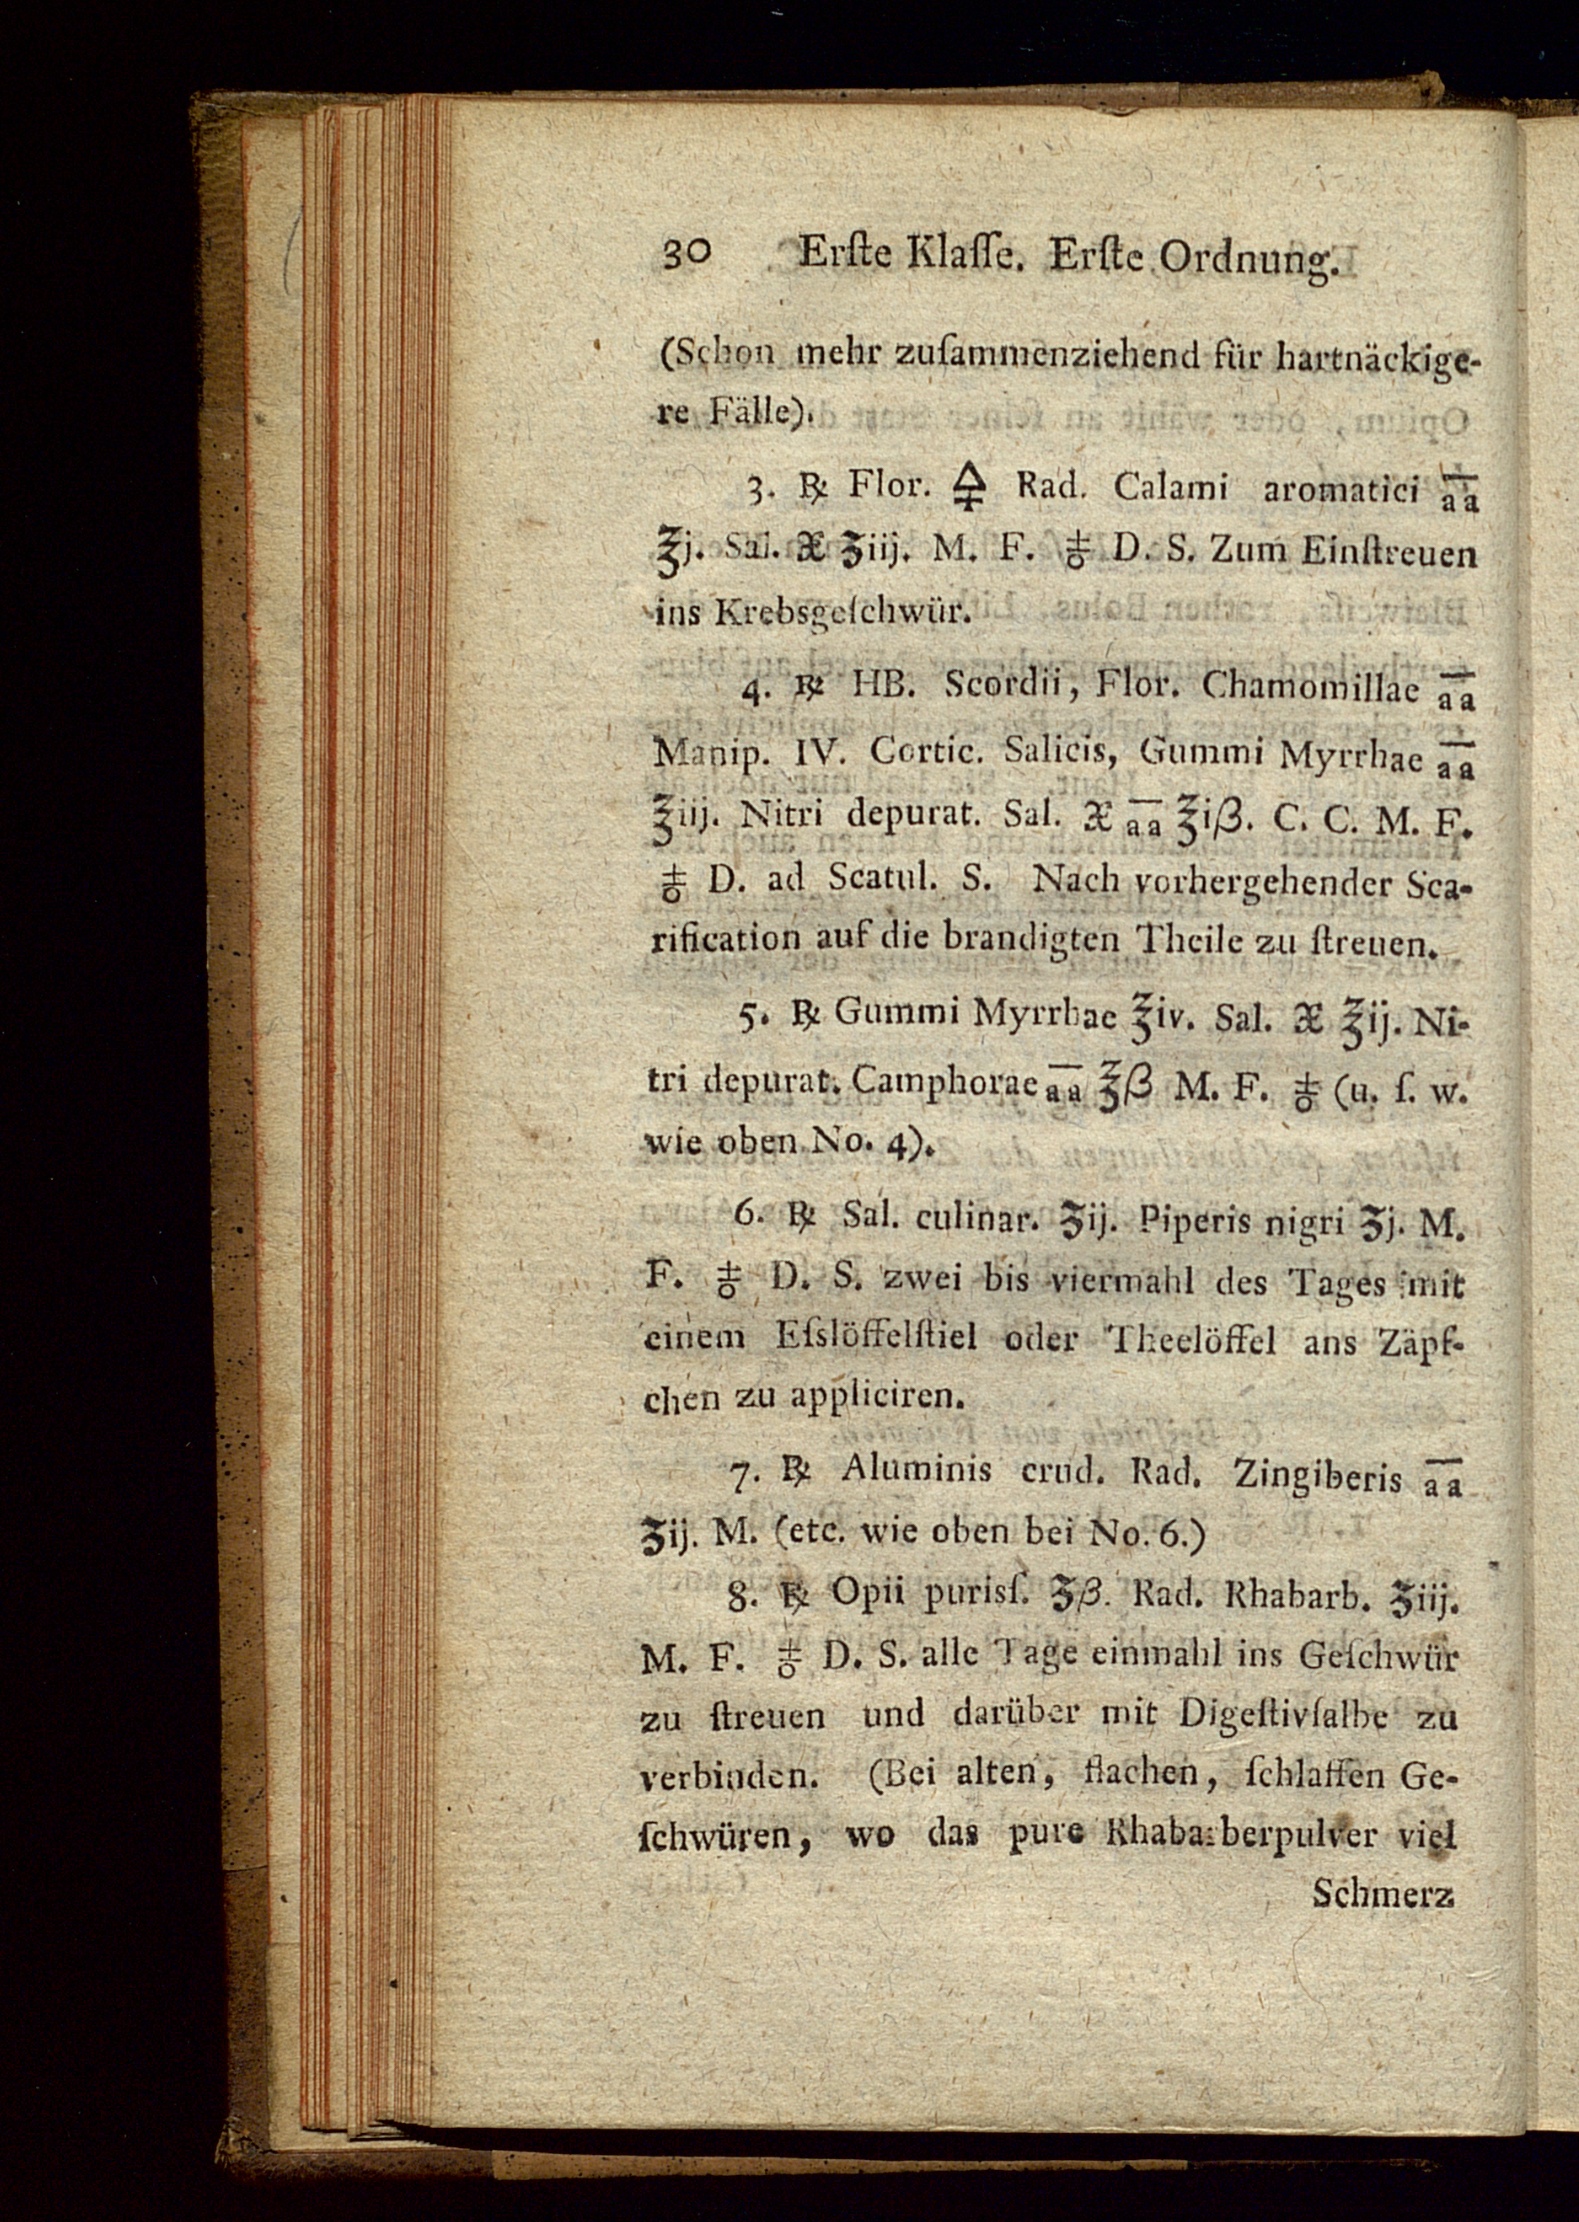 30 Erſte Klaſſe. Erſte Ordnung.
(Schon mehr zuſammenziehend für hartnäckige-
re Fälle).
3. ℞ Flor. 🜍 Rad. Calami aromatici a̅a̅
℥j. Sal. 🜹 ʒiij. M. F. 🜘 D. S. Zum Einſtreuen
ins Krebsgeſchwür.
4. ℞ HB. Scordii, Flor. Chamomillae a̅a̅
Manip. IV. Cortic. Salicis, Gummi Myrrhae a̅a̅
℥iij. Nitri depurat. Sal. 🜹 a̅a̅ ℥iβ. C. C. M. F.
🜘 D. ad Scatul. S. Nach vorhergehender Sca-
rification auf die brandigten Theile zu ſtreuen.
5. ℞ Gummi Myrrhae ℥iv. Sal. 🜹 ℥ij. Ni-
tri depurat. Camphorae a̅a̅ ℥β M. F. 🜘 (u. ſ. w.
wie oben No. 4).
6. ℞ Sal. culinar. ʒij. Piperis nigri ʒj. M.
F. 🜘 D. S. zwei bis viermahl des Tages mit
einem Eſslöffelſtiel oder Theelöffel ans Zäpf-
chen zu appliciren.
7. ℞ Aluminis crud. Rad. Zingiberis a̅a̅
ʒij. M. (etc. wie oben bei No. 6.)
8. ℞ Opii purisſ. ʒβ. Rad. Rhabarb. ʒiij.
M. F. 🜘 D. S. alle Tage einmahl ins Geſchwür
zu ſtreuen und darüber mit Digeſtivſalbe zu
verbinden. (Bei alten, flachen, ſchlaffen Ge-
ſchwüren, wo das pure Rhabarberpulver viel
Schmerz